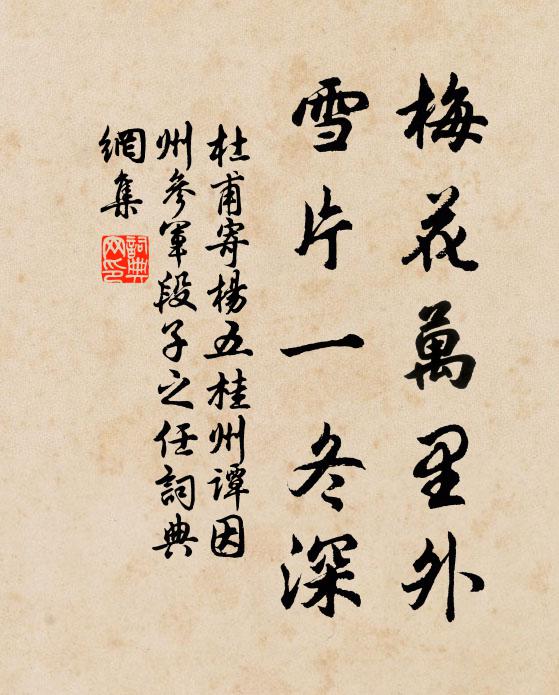 梅花萬里外
雪片一冬深
杜甫寄楊五桂州譚因
州參軍段子之任詞典
網集
詞典
网印